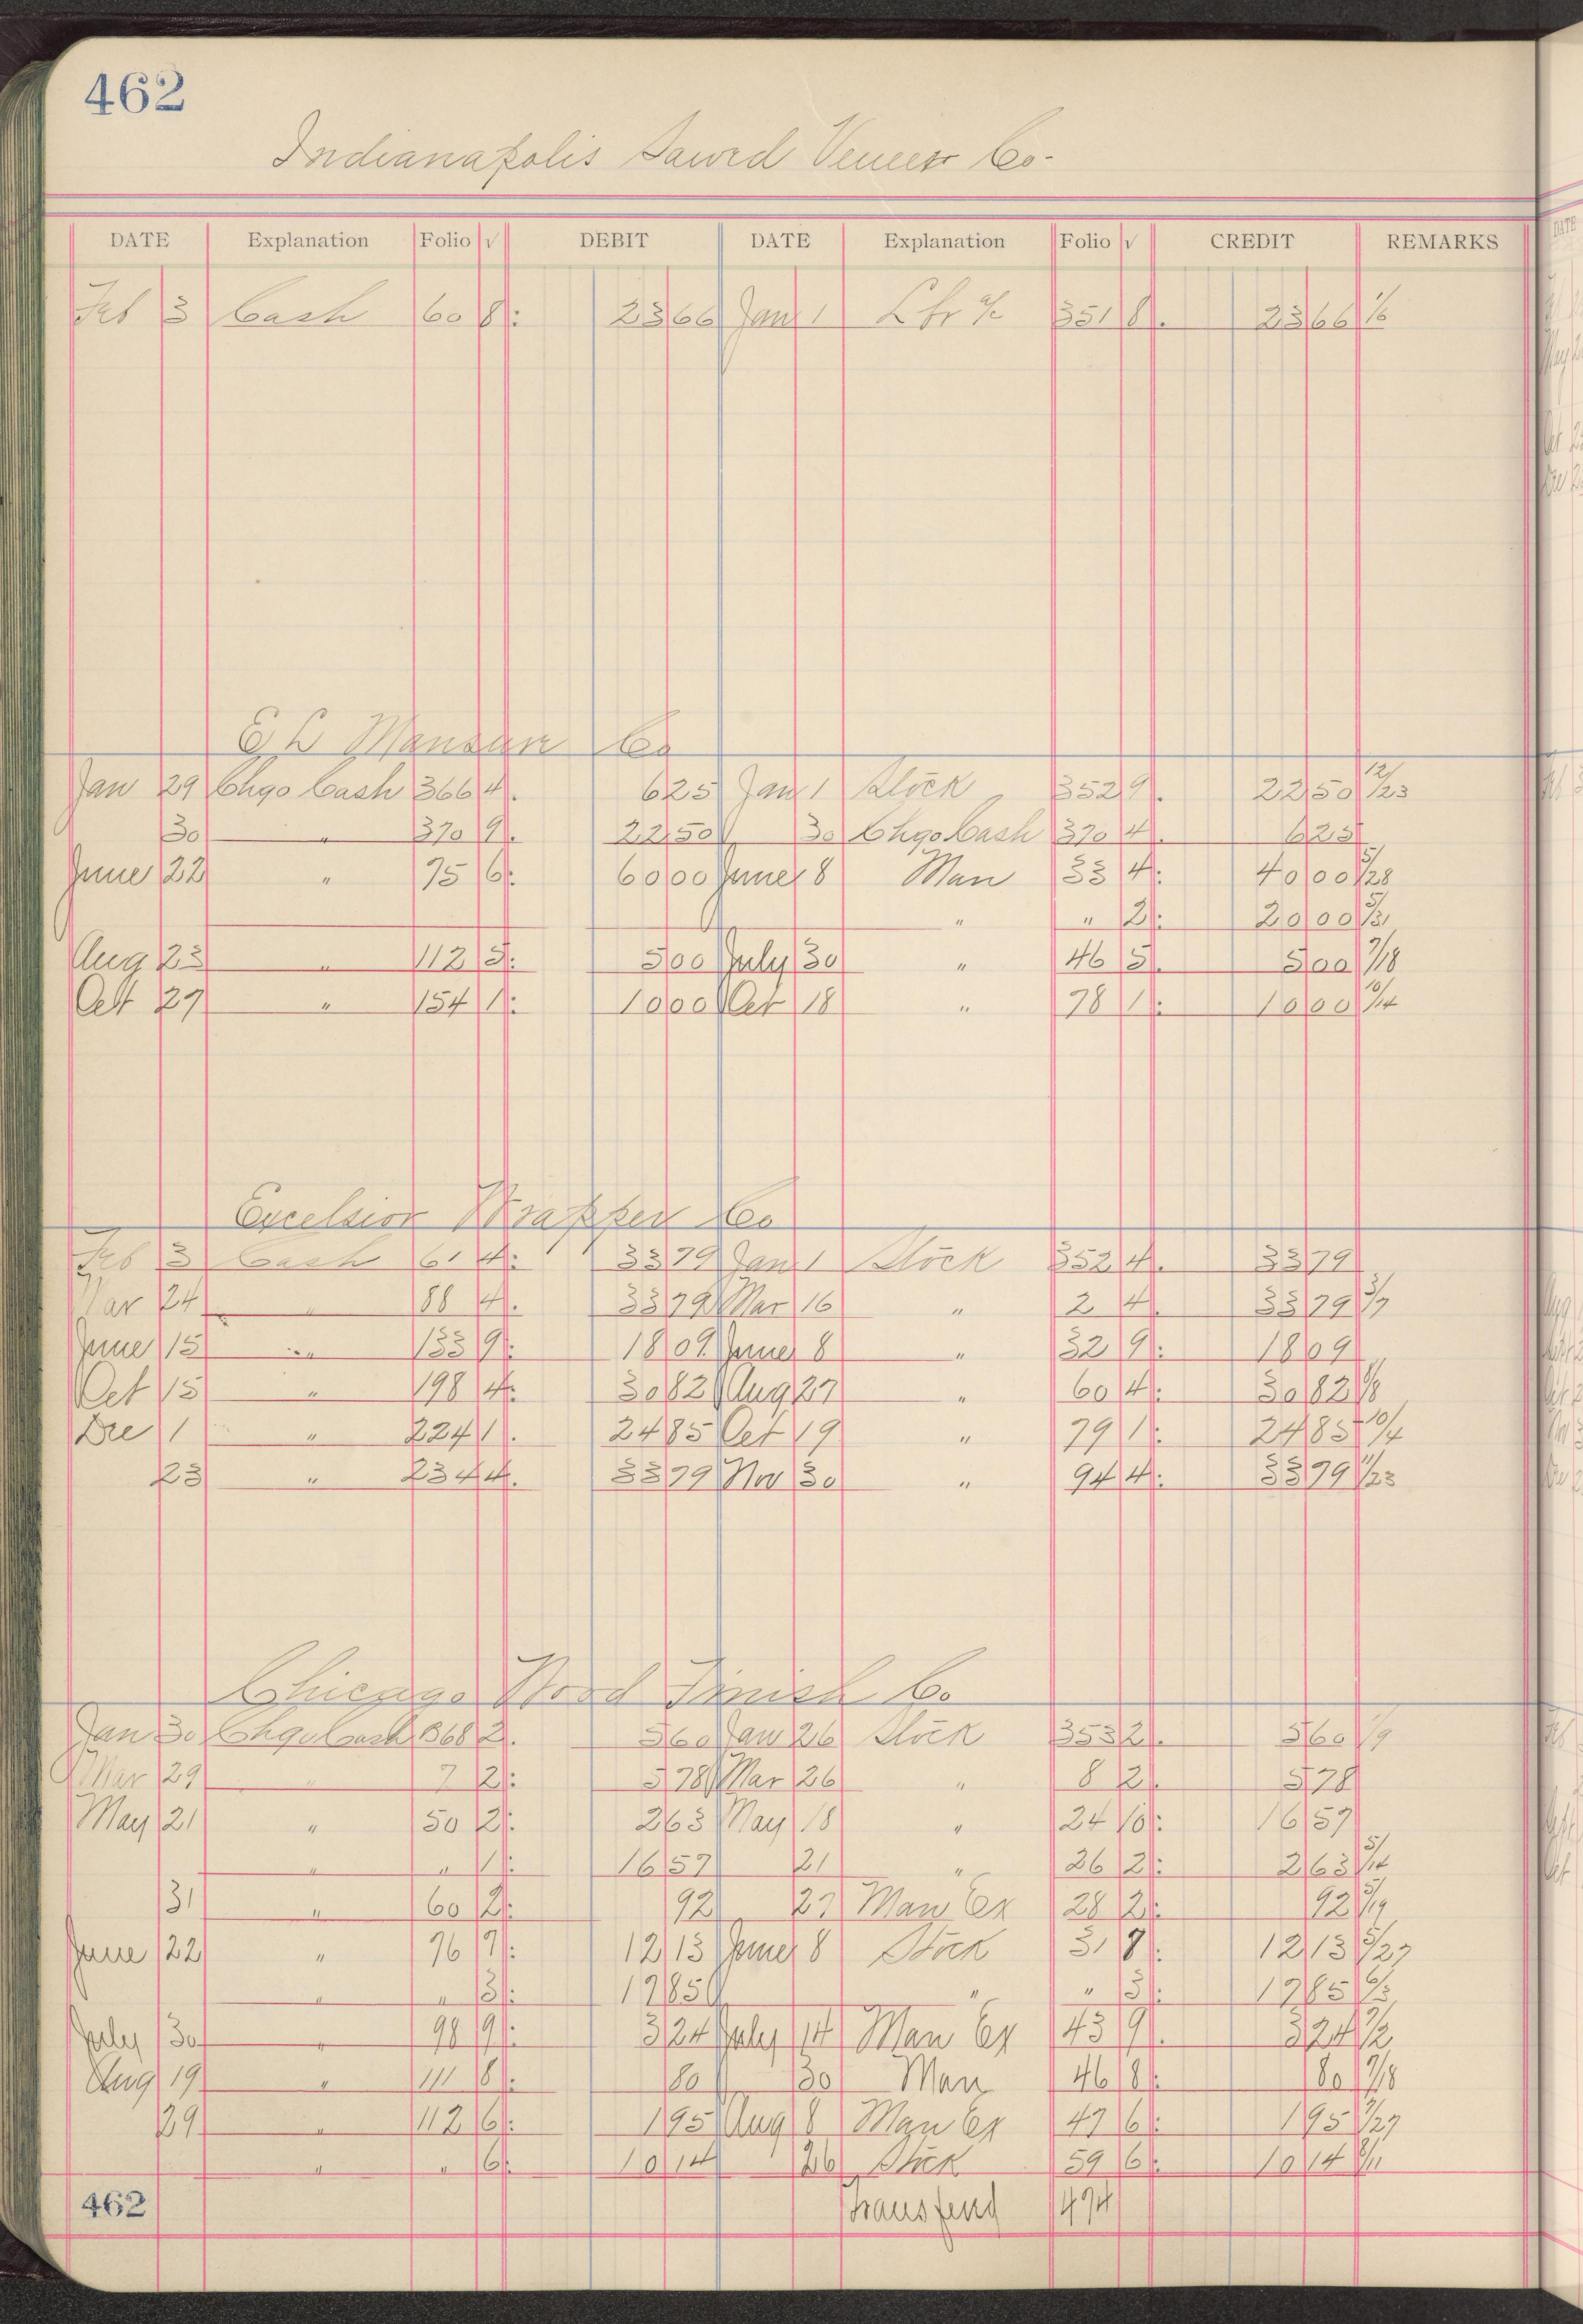 462
Indianapolis Sawed Veneer Co-
DATE Explanation Folio √ DEBIT DATE Explanation Folio √ CREDIT REMARKS
Feb 3 Cash 60 8: 23 66 Jan 1 Lbr a/c 351 8. 23 66 1/6
E L Mansure Co
Jan 29 Chgo Cash 366 4. 6 25 Jan 1 Stock 352 9. 22 50 12/23
30 " 370 9. 22 50 30 Chgo Cash 370 4. 6 25
June 22 " 75 6: 60 00 June 8 Man 33 4: 40 00 5/28
" " 2: 20 00 5/31
Aug 23 " 112 5: 5 00 July 30 " 46 5. 5 00 7/18
Oct 27 " 154 1: 10 00 Oct 18 " 78 1: 10 00 10/14
Excelsior Wrapper Co
Feb 3 Cash 61 4: 33 79 Jan 1 Stock 352 4. 33 79
Mar 24 " 88 4. 33 79 Mar 16 " 2 4. 33 79 3/7
June 15 " 133 9: 18 09 June 8 " 32 9: 18 09
Oct 15 " 198 4: 30 82 Aug 27 " 60 4: 30 82
Dec 1 " 224 1. 24 85 Oct 19 " 79 1: 24 85 10/4
23 " 234 4. 33 79 Nov 30 " 94 4: 33 79 11/23
Chicago Wood Finish Co
Jan 30 Chgo Cash 368 2. 5 60 Jan 26 Stock 353 2. 5 60 1/9
Mar 29 " 7 2: 5 78 Mar 26 " 8 2. 5 78
May 21 " 50 2: 2 63 May 18 " 24 16 57
" " 1: 16 57 21 " 26 2: 2 63 5/14
31 " 60 2: 92 27 Man Ex 28 2: 92 5/19
June 22 " 76 7: 12 13 June 8 Stock 31 12 13 5/27
" " 3: 17 85 " " 3: 17 85 6/3
July 30 " 98 9: 3 24 July 14 Man Ex 43 9. 3 24 7/2
Aug 19 " 111 8: 80 30 Man 46 8: 80 7/18
29 " 112 6: 1 95 Aug 8 Man Ex 47 6: 1 95 7/27
" " 6: 10 14 26 Stock 59 6: 10 14 8/11
462 Transferd 474